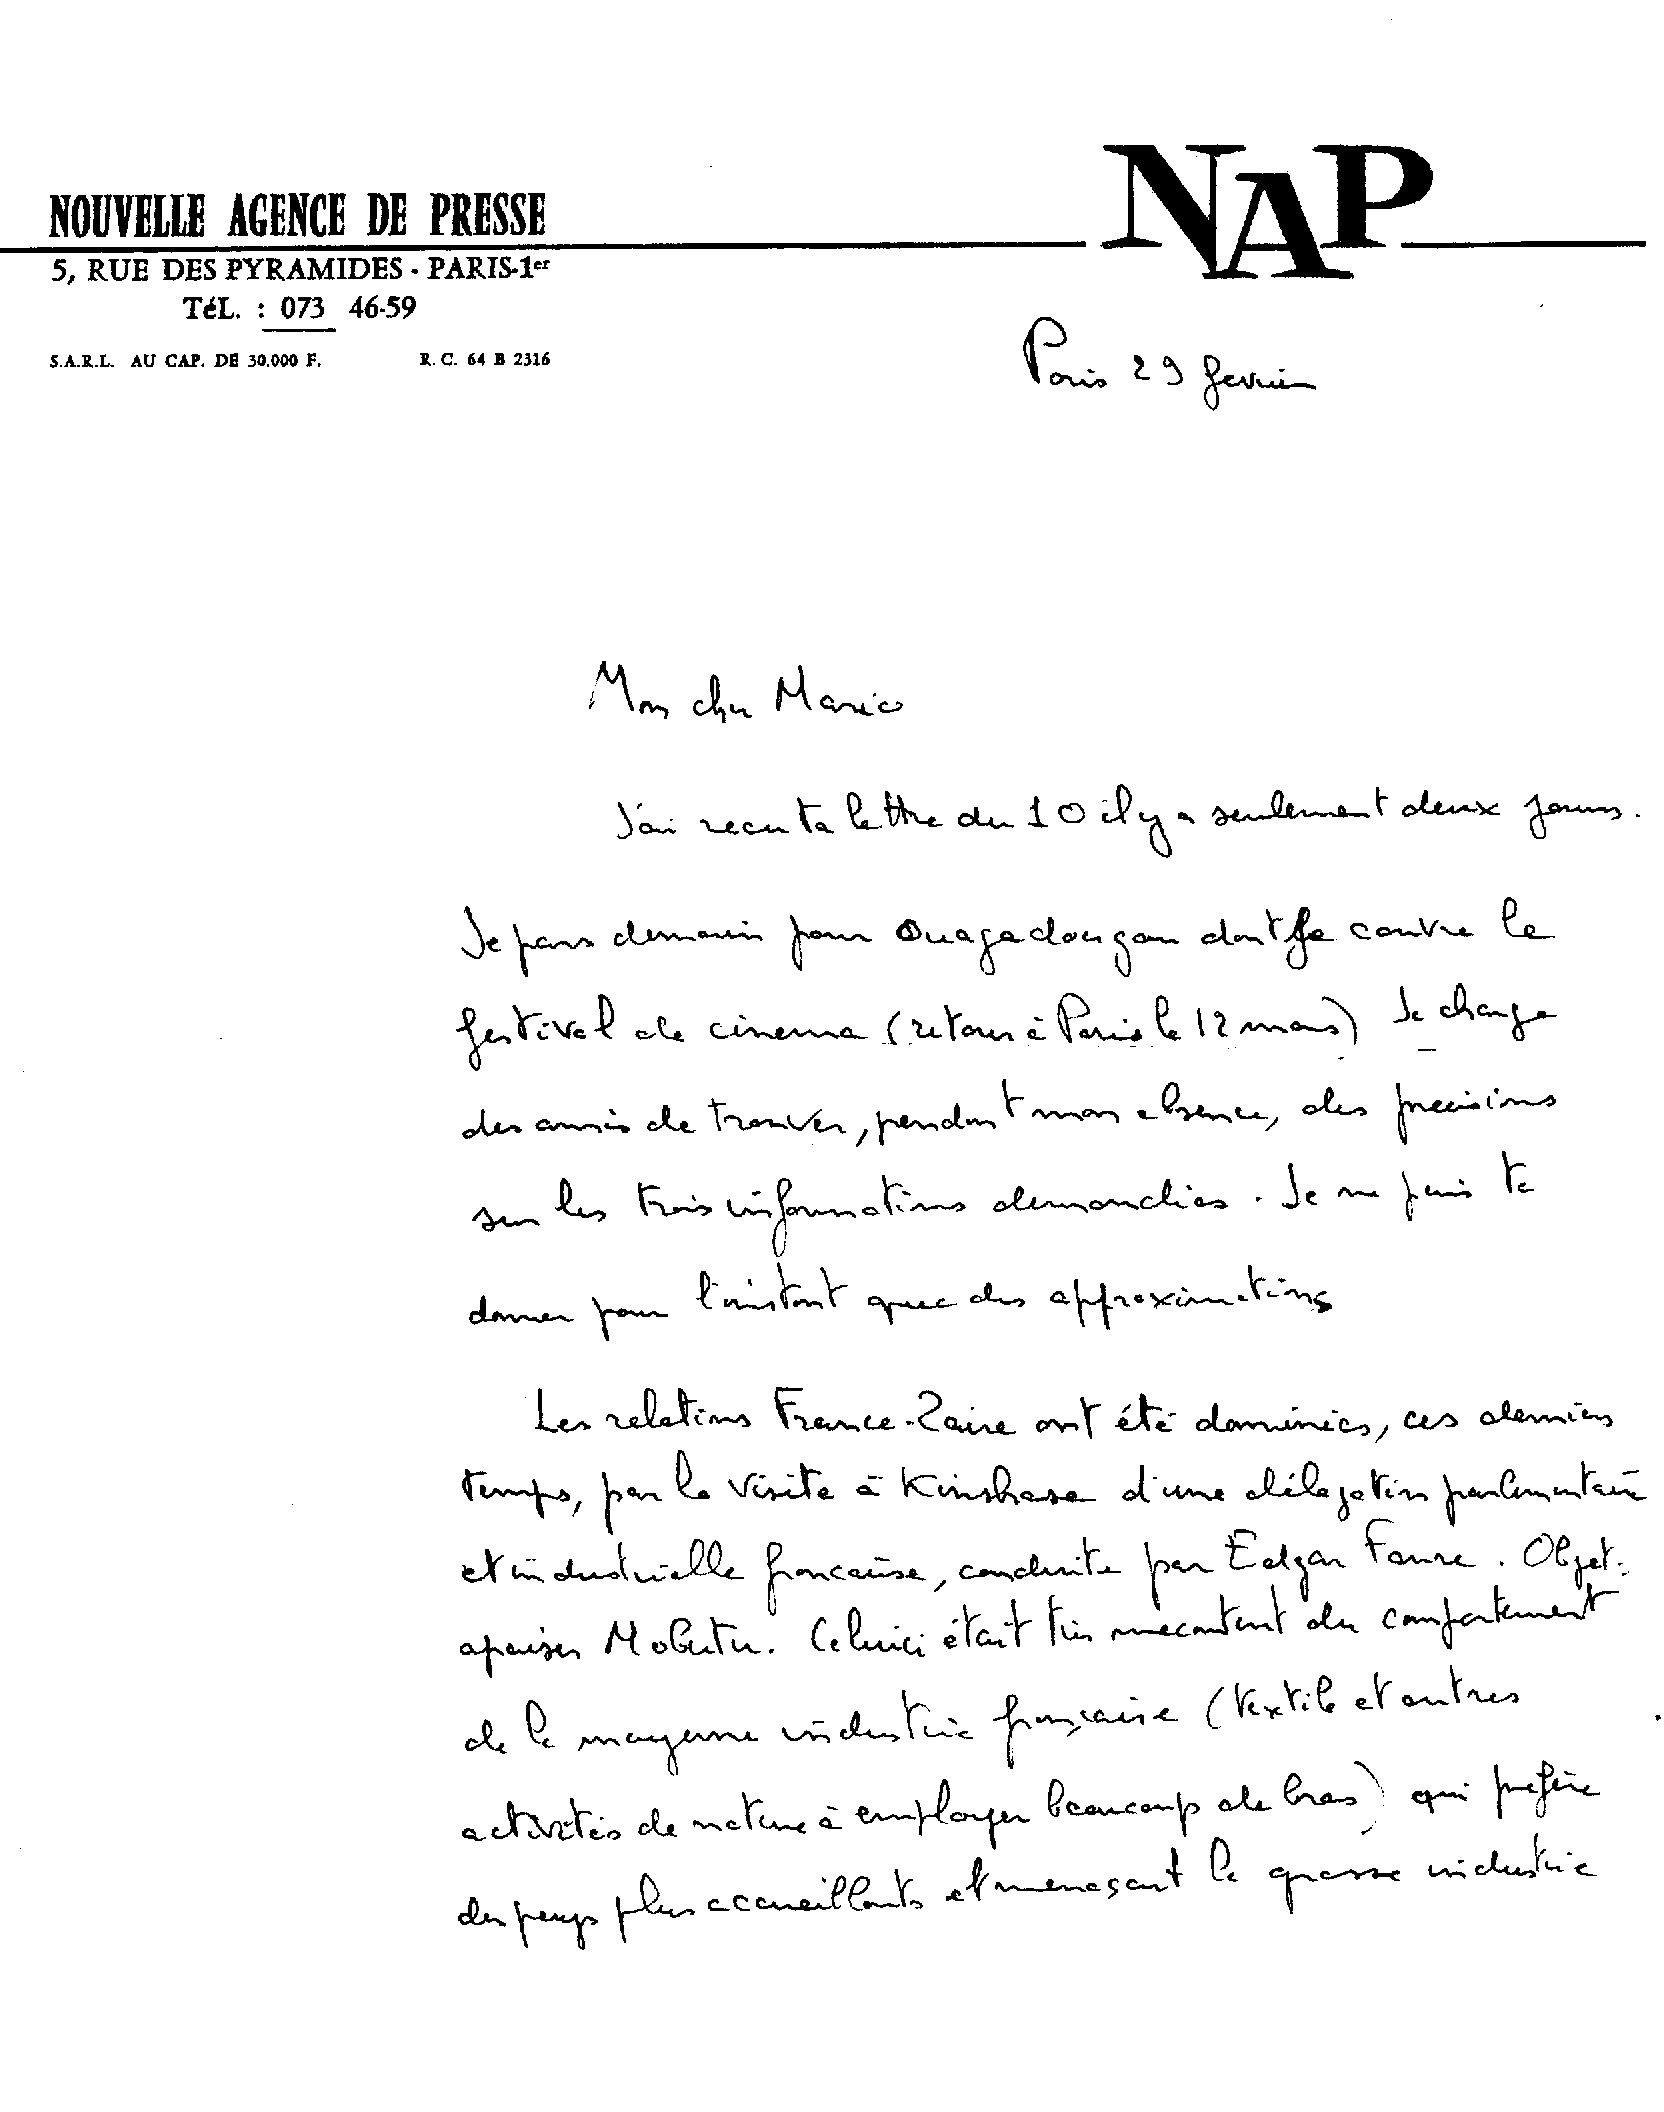 NOUVELLE AGENCE DE PRESSE
NAP
5, RUE DES PYRAMIDES - PARIS-1er
TéL. : 073 46-59
S.A.R.L. AU CAP. DE 30.000 F. R. C. 64 B 2316
Paris 29 fevrier
Mon cher Mario
J'ai recu ta lettre du 10 il y a seulement deux jours.
Je pars demain pour Ouagadougou dont je couvre le
festival de cinema (retour à Paris le 12 mars) Je charge
des amis de trouver, pendant mon absence, des precisions
sur les trois informations demandées. Je ne puis te
donner pour l'instant que des approximations
Les relations France-Zaire ont été dominées, ces derniers
temps, par la visite à Kinshasa d'une délégation parlementaire
et industrielle francaise, conduite par Edgar Faure. Objet:
apaiser Mobutu. Celui ci était très mecontent du comportement
de la moyenne industrie française (textile et autres
activités de nature à employer beaucoup de bras) qui prefère
des pays plus accueillants et menaçant la grosse industrie